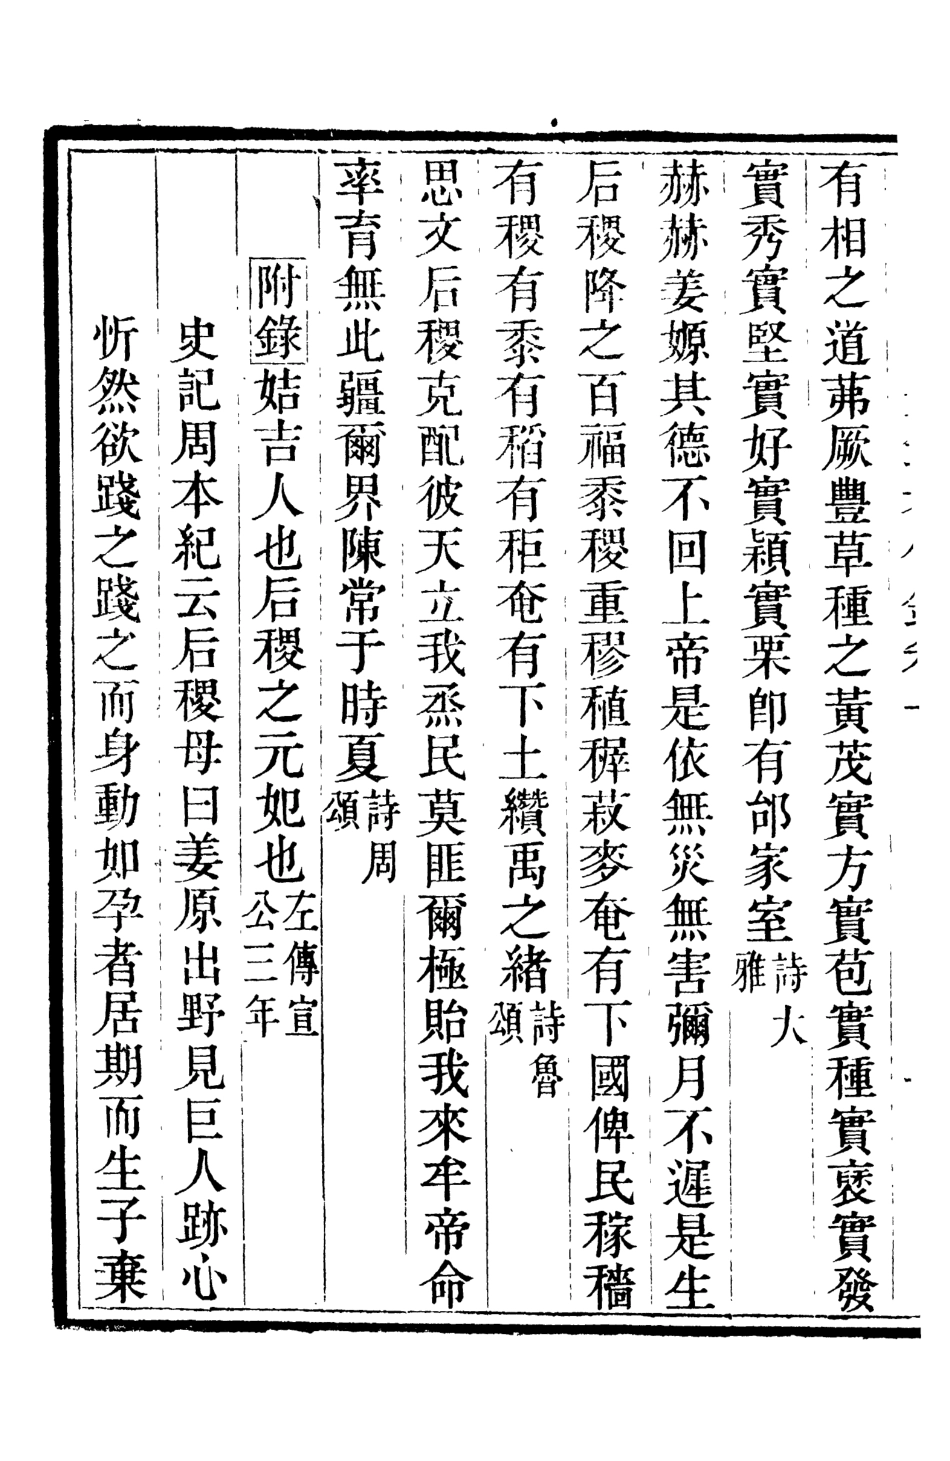 有相之道茀厥豐草種之黃茂實方實苞實種實襃實發
實秀實堅實好實穎實栗卽有邰家室詩大雅
赫赫姜嫄其德不回上帝是依無災無害彌月不遲是生
后稷降之百福黍稷重穋稙稺菽麥奄有下國俾民稼穡
有稷有黍有稻有秬奄有下土纘禹之緒詩魯頌
思文后稷克配彼天立我烝民莫匪爾極貽我來牟帝命
率育無此疆爾界陳常于時夏詩周頌
附錄姞吉人也后稷之元妃也左傳宣公三年
史記周本紀云后稷母曰姜原出野見巨人跡心
忻然欲踐之踐之而身動如孕者居期而生子棄